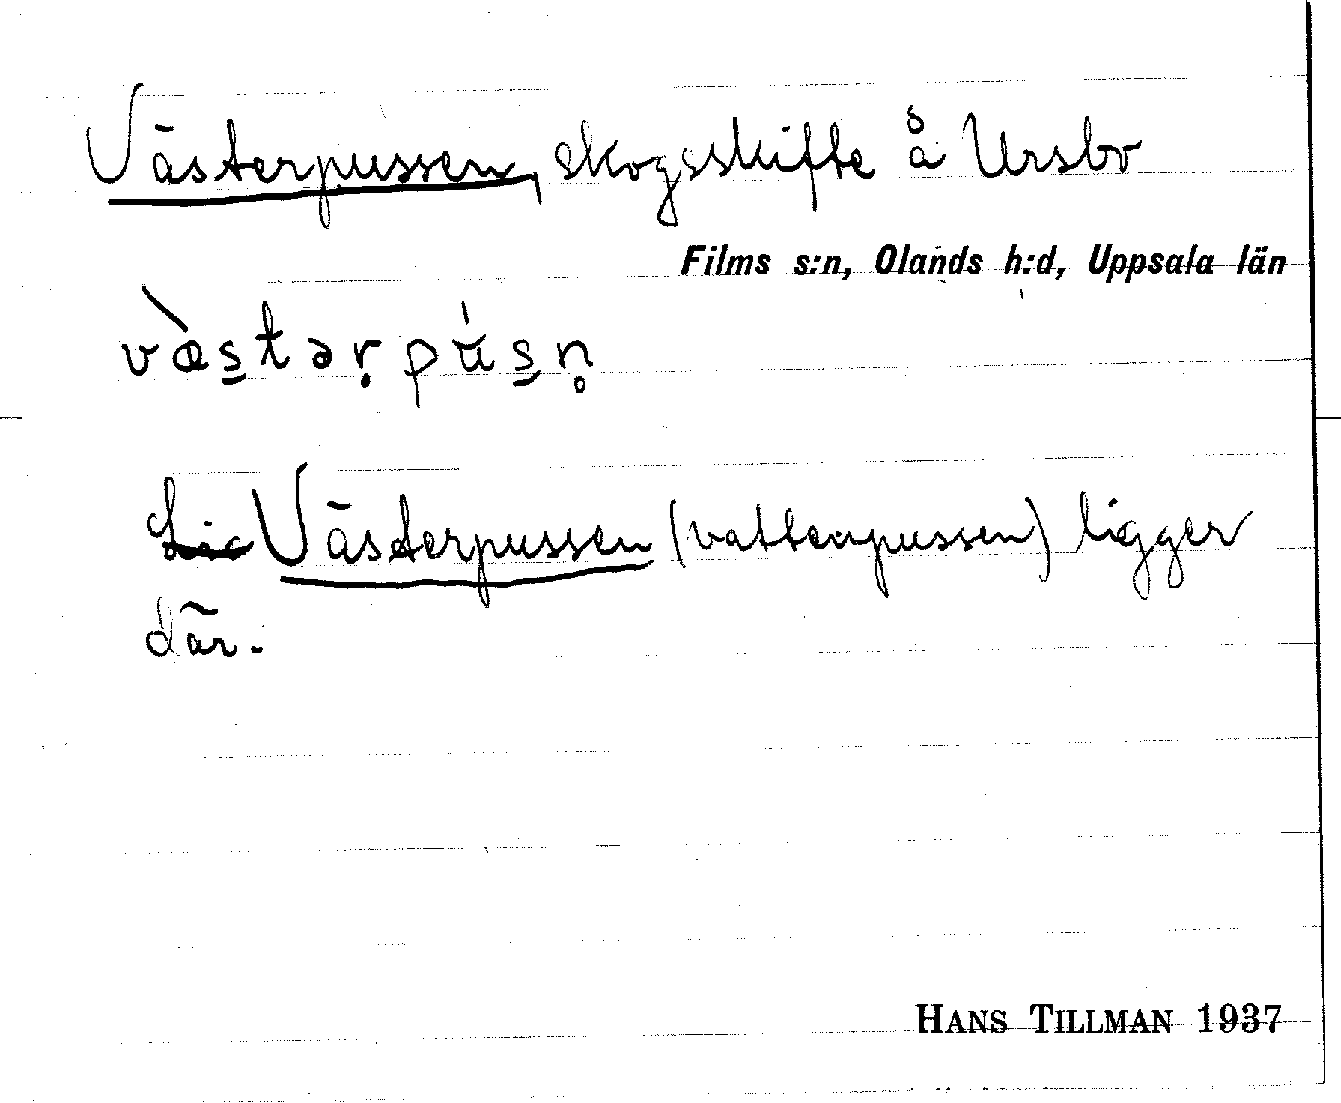 Västerpussen, skogsskifte å Ursbo
Films s:n, Olands h:d, Uppsala län
vὰs̲tər̩pús̲n̥
Västerpussen (vattenpussen) ligger
där.
HANS TILLMAN 1937